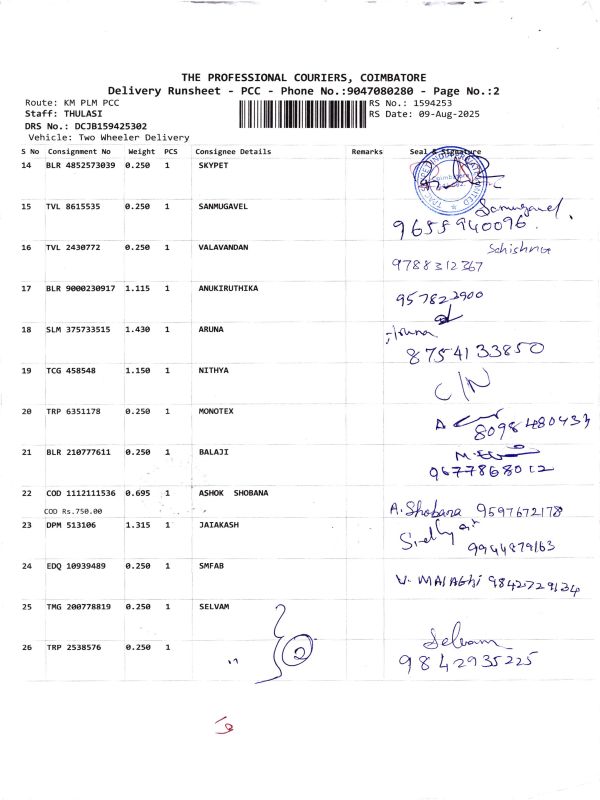 THE PROFESSIONAL COURIERS, COIMBATORE
Delivery Runsheet - PCC - Phone No.:9047080280 - Page No.:2
Route: KM PLM PCC RS No.: 1594253
Staff: THULASI RS Date: 09-Aug-2025
DRS No.: DCJB159425302
Vehicle: Two Wheeler Delivery
S No Consignment No Weight PCS Consignee Details Remarks Seal & Signature
14 BLR 4852573039 0.250 1 SKYPET
15 TVL 8615535 0.250 1 SANMUGAVEL Sanmugavel.
9655940096.
16 TVL 2430772 0.250 1 VALAVANDAN
9788312367
17 BLR 9000230917 1.115 1 ANUKIRUTHIKA
957822900
18 SLM 375733515 1.430 1 ARUNA Aruna
8754133850
19 TCG 458548 1.150 1 NITHYA C/N
20 TRP 6351178 0.250 1 MONOTEX
8098480433
21 BLR 210777611 0.250 1 BALAJI
9677868012
22 COD 1112111536 0.695 1 ASHOK SHOBANA A. Shobana 9597672178
COD Rs.750.00
23 DPM 513106 1.315 1 JAIAKASH
9944879163
24 EDQ 10939489 0.250 1 SMFAB V. MALAGHI 9842729134
25 TMG 200778819 0.250 1 SELVAM
26 TRP 2538576 0.250 1 " 2 Selvam
9842935225